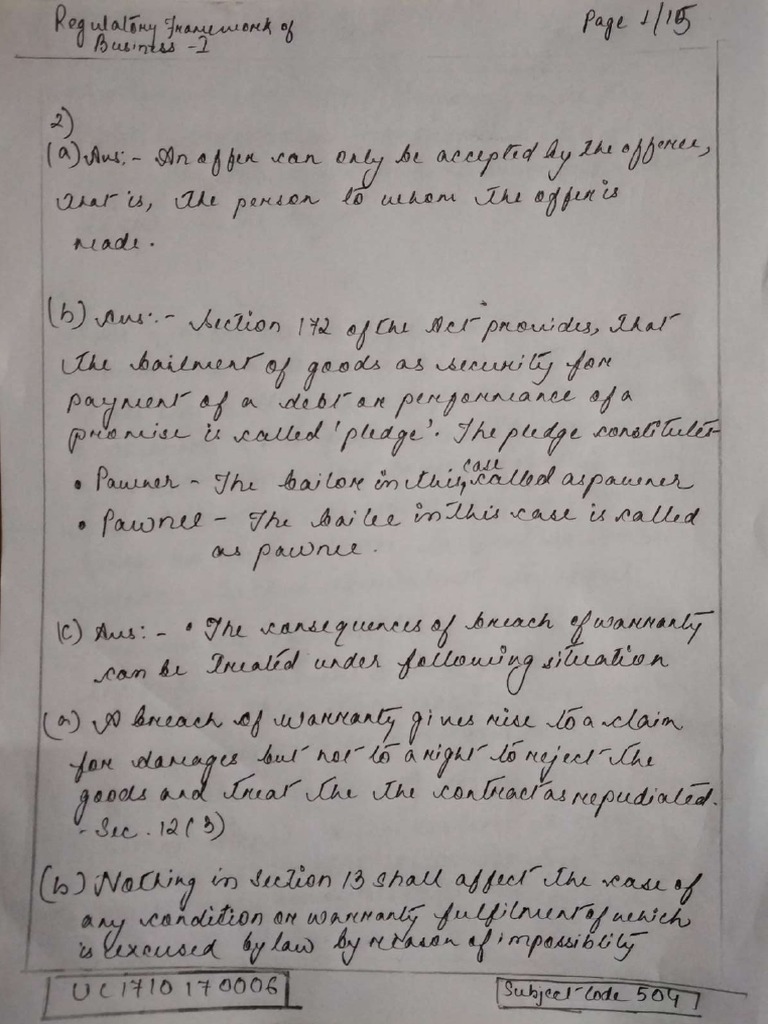 Regulatory Framework of
Business - I
Page 1/15
2)
(a) Ans:- An offer can only be accepted by the offeree,
that is, the person to whom the offer is
made.
(b) Ans:- Section 172 of the Act provides, that
the bailment of goods as security for
payment of a debt or performance of a
promise is called 'pledge'. The pledge constitutes-
• Pawner - The bailor in this case called as pawner
• Pawnee - The bailee in this case is called
as pawnee.
(C) Ans:- • The consequences of breach of warranty
can be treated under following situation
(a) A breach of warranty gives rise to a claim
for damages but not to a right to reject the
goods and treat the the contract as repudiated.
- Sec. 12(3)
(b) Nothing in Section 13 shall affect the case of
any condition or warranty fulfilment of which
is excused by law by reason of impossiblity
UC1710170006
Subject code 504